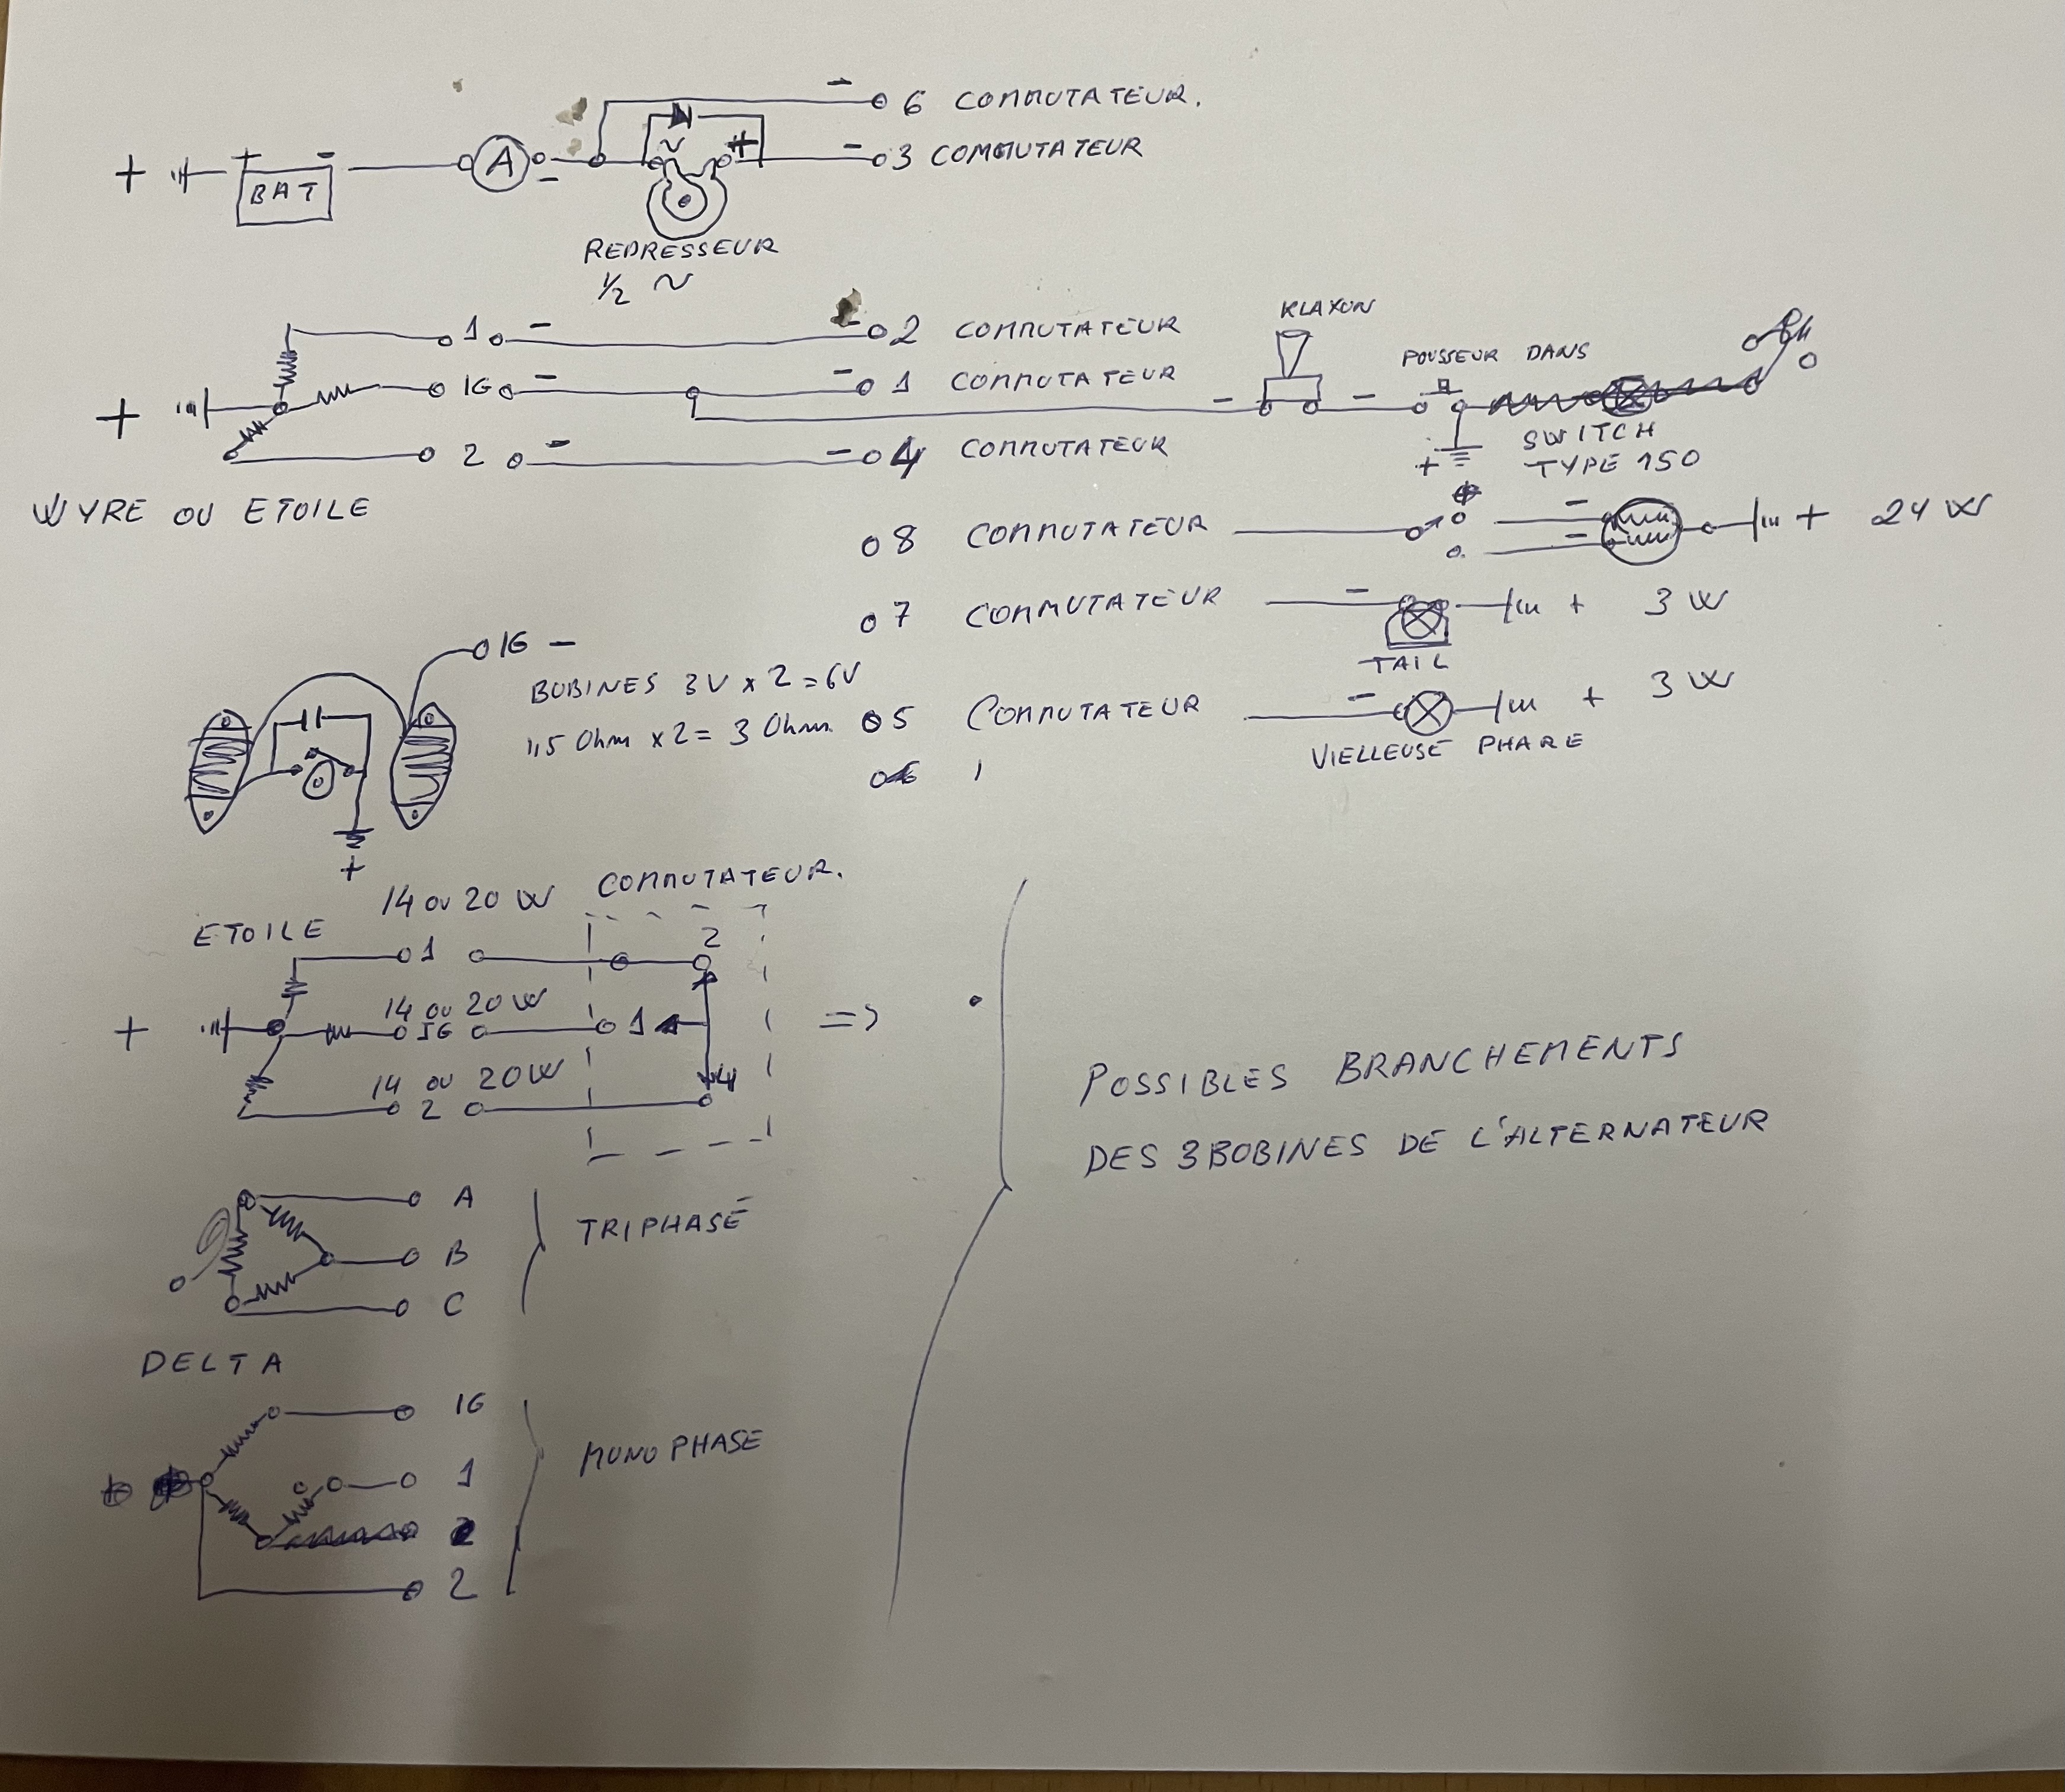 6 COMMUTATEUR.
+ + - A -
- 3 COMMUTATEUR
BAT
~ +
REDRESSEUR
1/2 ~
1 - - 2 COMMUTATEUR
KLAXON
+ IG - - 1 COMMUTATEUR
POUSSEUR DANS
SWITCH
TYPE 150
2 - - 4 COMMUTATEUR
+
WYRE OU ETOILE
8 COMMUTATEUR - - + 24 W
7 COMMUTATEUR - + 3 W
TAIL
IG -
BOBINES 3V x 2 = 6V
1,5 Ohm x 2 = 3 Ohm
5 COMMUTATEUR - + 3 W
VIELLEUSE PHARE
+
14 OU 20 W COMMUTATEUR.
ETOILE
1 2
14 OU 20 W
+ IG 1 =>
14 OU 20W
2 4
POSSIBLES BRANCHEMENTS
DES 3 BOBINES DE L'ALTERNATEUR
A
B
C
TRIPHASÉ
DELTA
IG
1
2
MONOPHASE